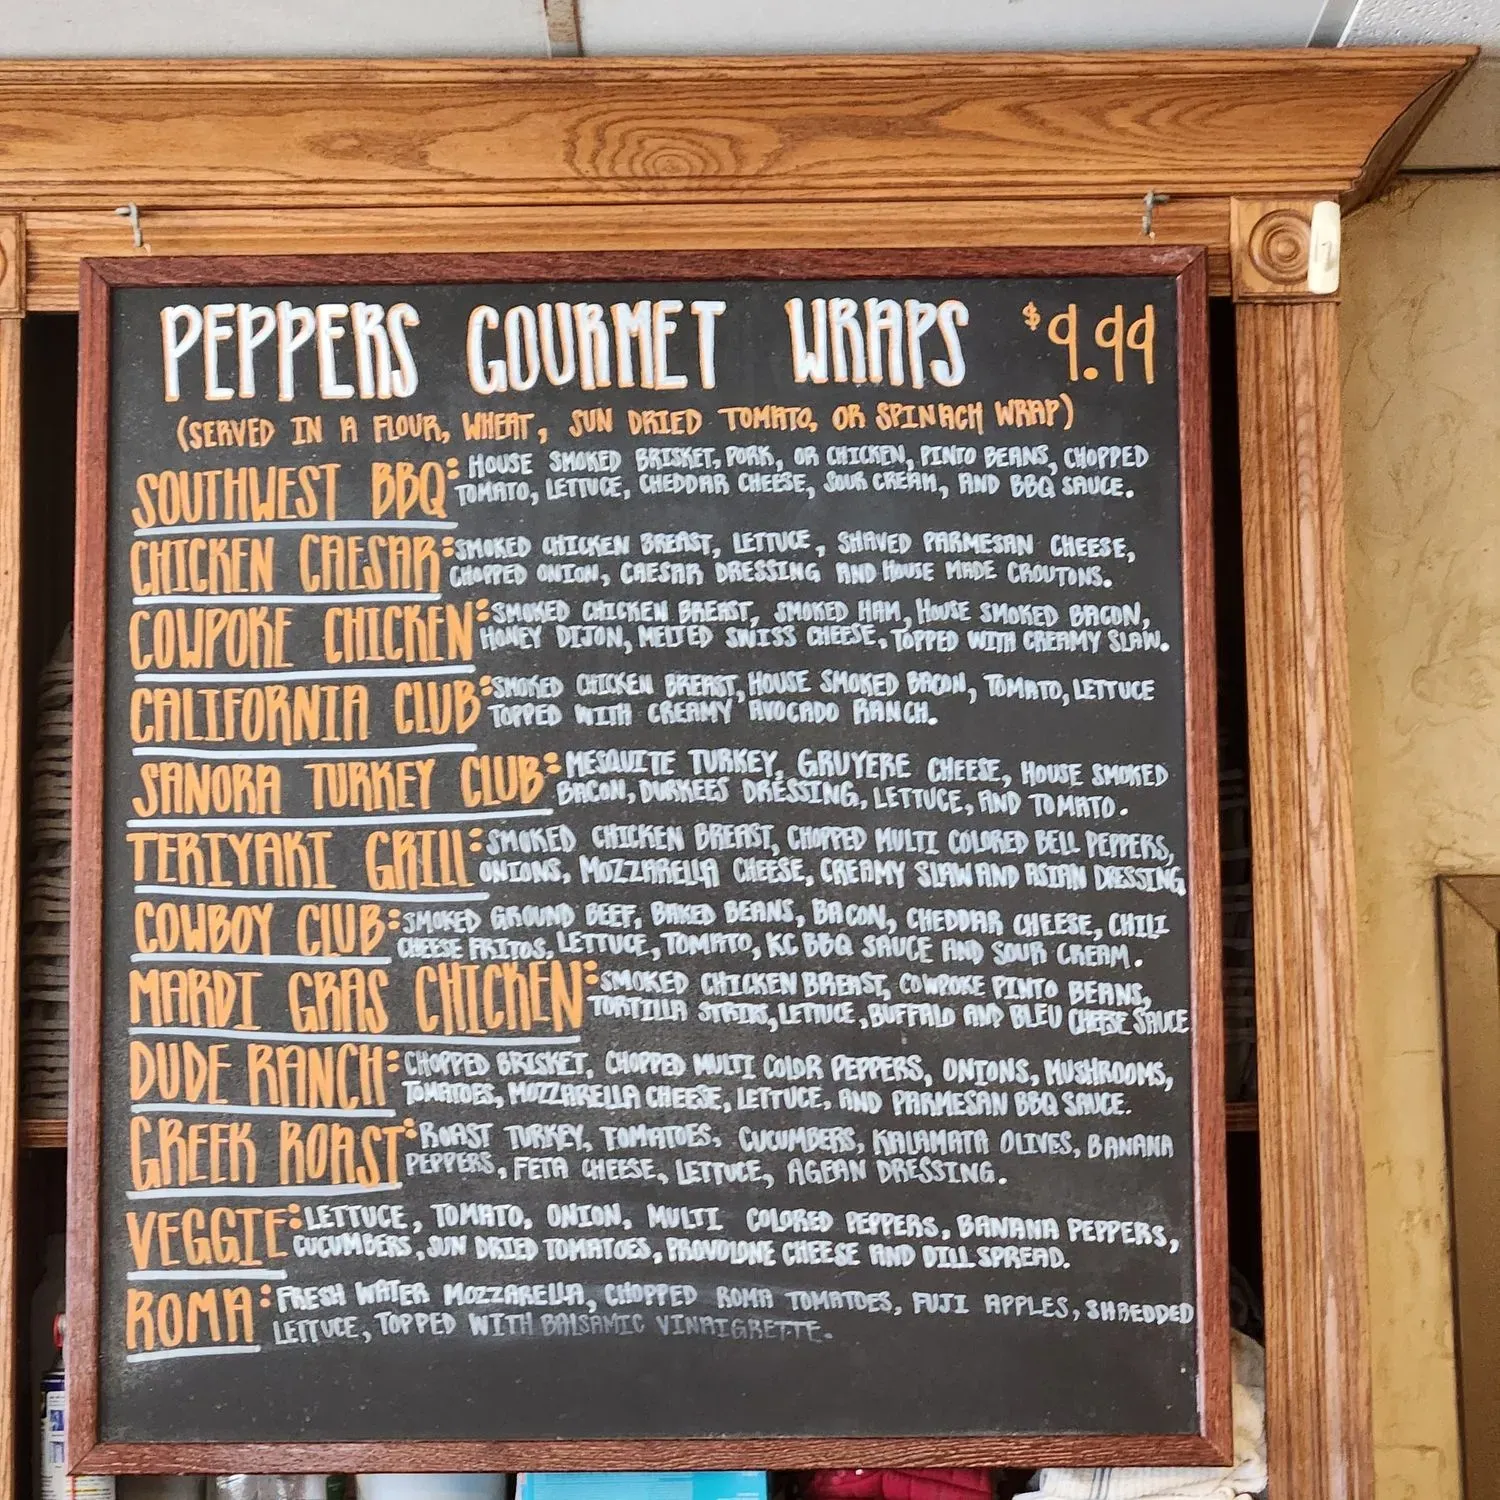 PEPPERS GOURMET WRAPS $9.99
(SERVED IN A FLOUR, WHEAT, SUN DRIED TOMATO, OR SPINACH WRAP)
SOUTHWEST BBQ: HOUSE SMOKED BRISKET, PORK, OR CHICKEN, PINTO BEANS, CHOPPED
TOMATO, LETTUCE, CHEDDAR CHEESE, SOUR CREAM, AND BBQ SAUCE.
CHICKEN CAESAR: SMOKED CHICKEN BREAST, LETTUCE, SHAVED PARMESAN CHEESE,
CHOPPED ONION, CAESAR DRESSING AND HOUSE MADE CROUTONS.
COWPOKE CHICKEN: SMOKED CHICKEN BREAST, SMOKED HAM, HOUSE SMOKED BACON,
HONEY DIJON, MELTED SWISS CHEESE, TOPPED WITH CREAMY SLAW.
CALIFORNIA CLUB: SMOKED CHICKEN BREAST, HOUSE SMOKED BACON, TOMATO, LETTUCE
TOPPED WITH CREAMY AVOCADO RANCH.
SANORA TURKEY CLUB: MESQUITE TURKEY, GRUYERE CHEESE, HOUSE SMOKED
BACON, DURKEES DRESSING, LETTUCE, AND TOMATO.
TERIYAKI GRILL: SMOKED CHICKEN BREAST, CHOPPED MULTI COLORED BELL PEPPERS,
ONIONS, MOZZARELLA CHEESE, CREAMY SLAW AND ASIAN DRESSING
COWBOY CLUB: SMOKED GROUND BEEF, BAKED BEANS, BACON, CHEDDAR CHEESE, CHILI
CHEESE FRITOS, LETTUCE, TOMATO, KC BBQ SAUCE AND SOUR CREAM.
MARDI GRAS CHICKEN: SMOKED CHICKEN BREAST, COWPOKE PINTO BEANS,
TORTILLA STRIPS, LETTUCE, BUFFALO AND BLEU CHEESE SAUCE
DUDE RANCH: CHOPPED BRISKET, CHOPPED MULTI COLOR PEPPERS, ONIONS, MUSHROOMS,
TOMATOES, MOZZARELLA CHEESE, LETTUCE, AND PARMESAN BBQ SAUCE.
GREEK ROAST: ROAST TURKEY, TOMATOES, CUCUMBERS, KALAMATA OLIVES, BANANA
PEPPERS, FETA CHEESE, LETTUCE, AGEAN DRESSING.
VEGGIE: LETTUCE, TOMATO, ONION, MULTI COLORED PEPPERS, BANANA PEPPERS,
CUCUMBERS, SUN DRIED TOMATOES, PROVOLONE CHEESE AND DILL SPREAD.
ROMA: FRESH WATER MOZZARELLA, CHOPPED ROMA TOMATOES, FUJI APPLES, SHREDDED
LETTUCE, TOPPED WITH BALSAMIC VINAIGRETTE.